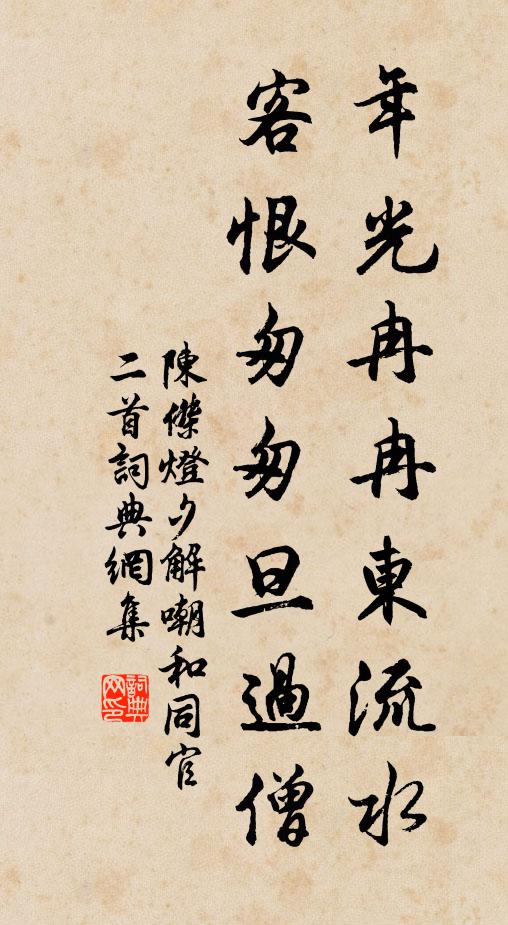 年光冉冉東流水
客恨匆匆旦過僧
陳傑燈夕解嘲和同官
二首詞典網集
詞典網印